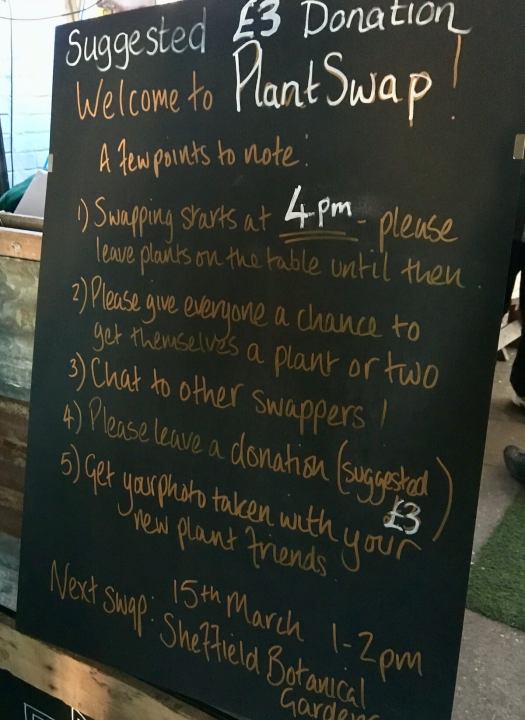 Suggested £3 Donation
Welcome to Plant Swap!
A few points to note:
1) Swapping starts at 4pm - please
leave plants on the table until then
2) Please give everyone a chance to
get themselves a plant or two
3) Chat to other swappers!
4) Please leave a donation (suggested
£3)
5) Get your photo taken with your
new plant friends
Next swap: 15th March 1-2pm
Sheffield Botanical
Gardens